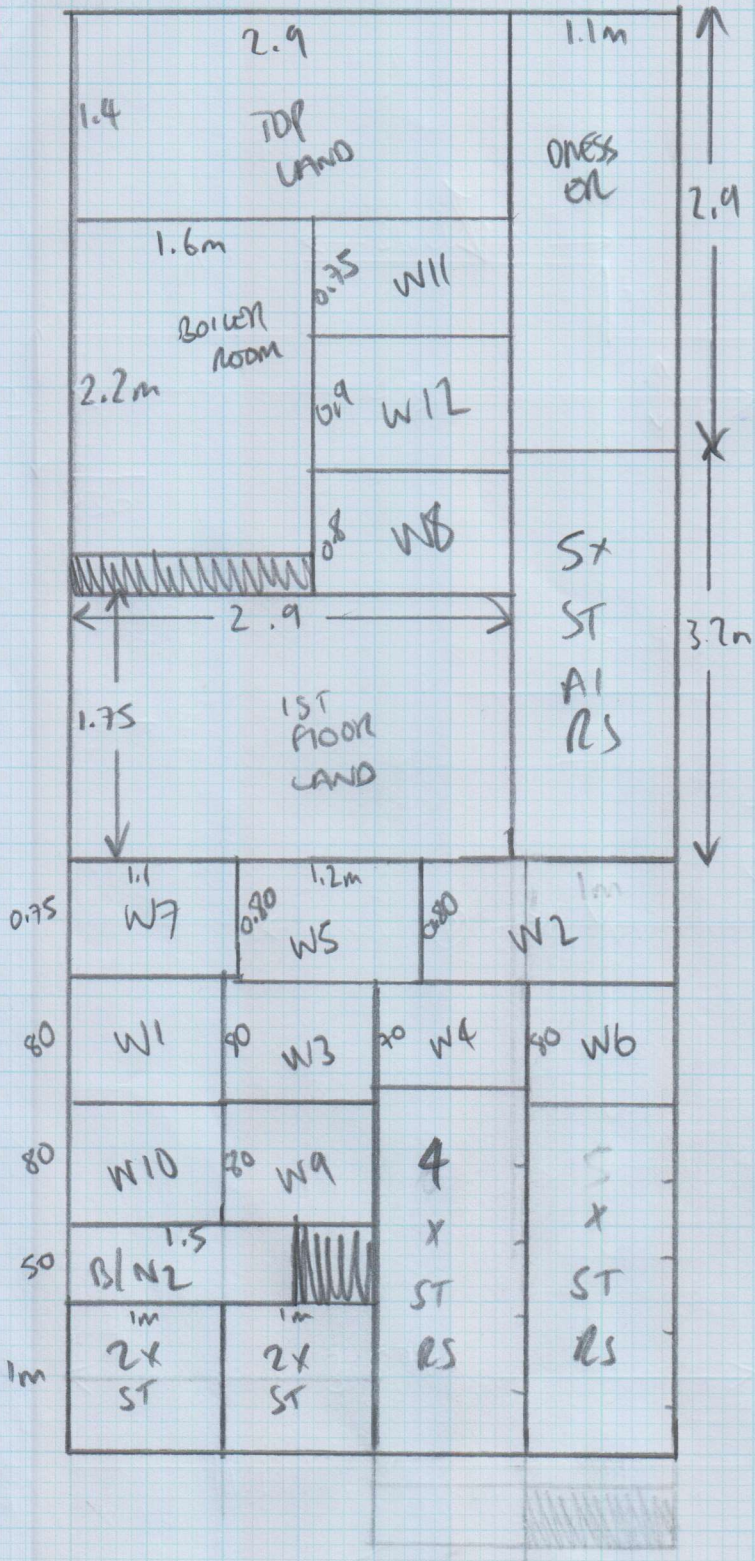 2.9
1.1m
1.4
TOP
LAND
DRESS
ER
2.9
1.6m
BOILER
ROOM
0.75
W11
2.2m
0.9
W12
0.8
W8
2.9
5x
ST
AI
RS
3.2m
1.75
1ST
FLOOR
LAND
0.75
1.1
W7
1.2m
0.80
W5
0.80
W2
1m
80
W1
80
W3
70
W4
80
W6
80
W10
80
W9
50
1.5
B/N2
4
X
ST
RS
5
X
ST
RS
1m
1m
2X
ST
1m
2X
ST